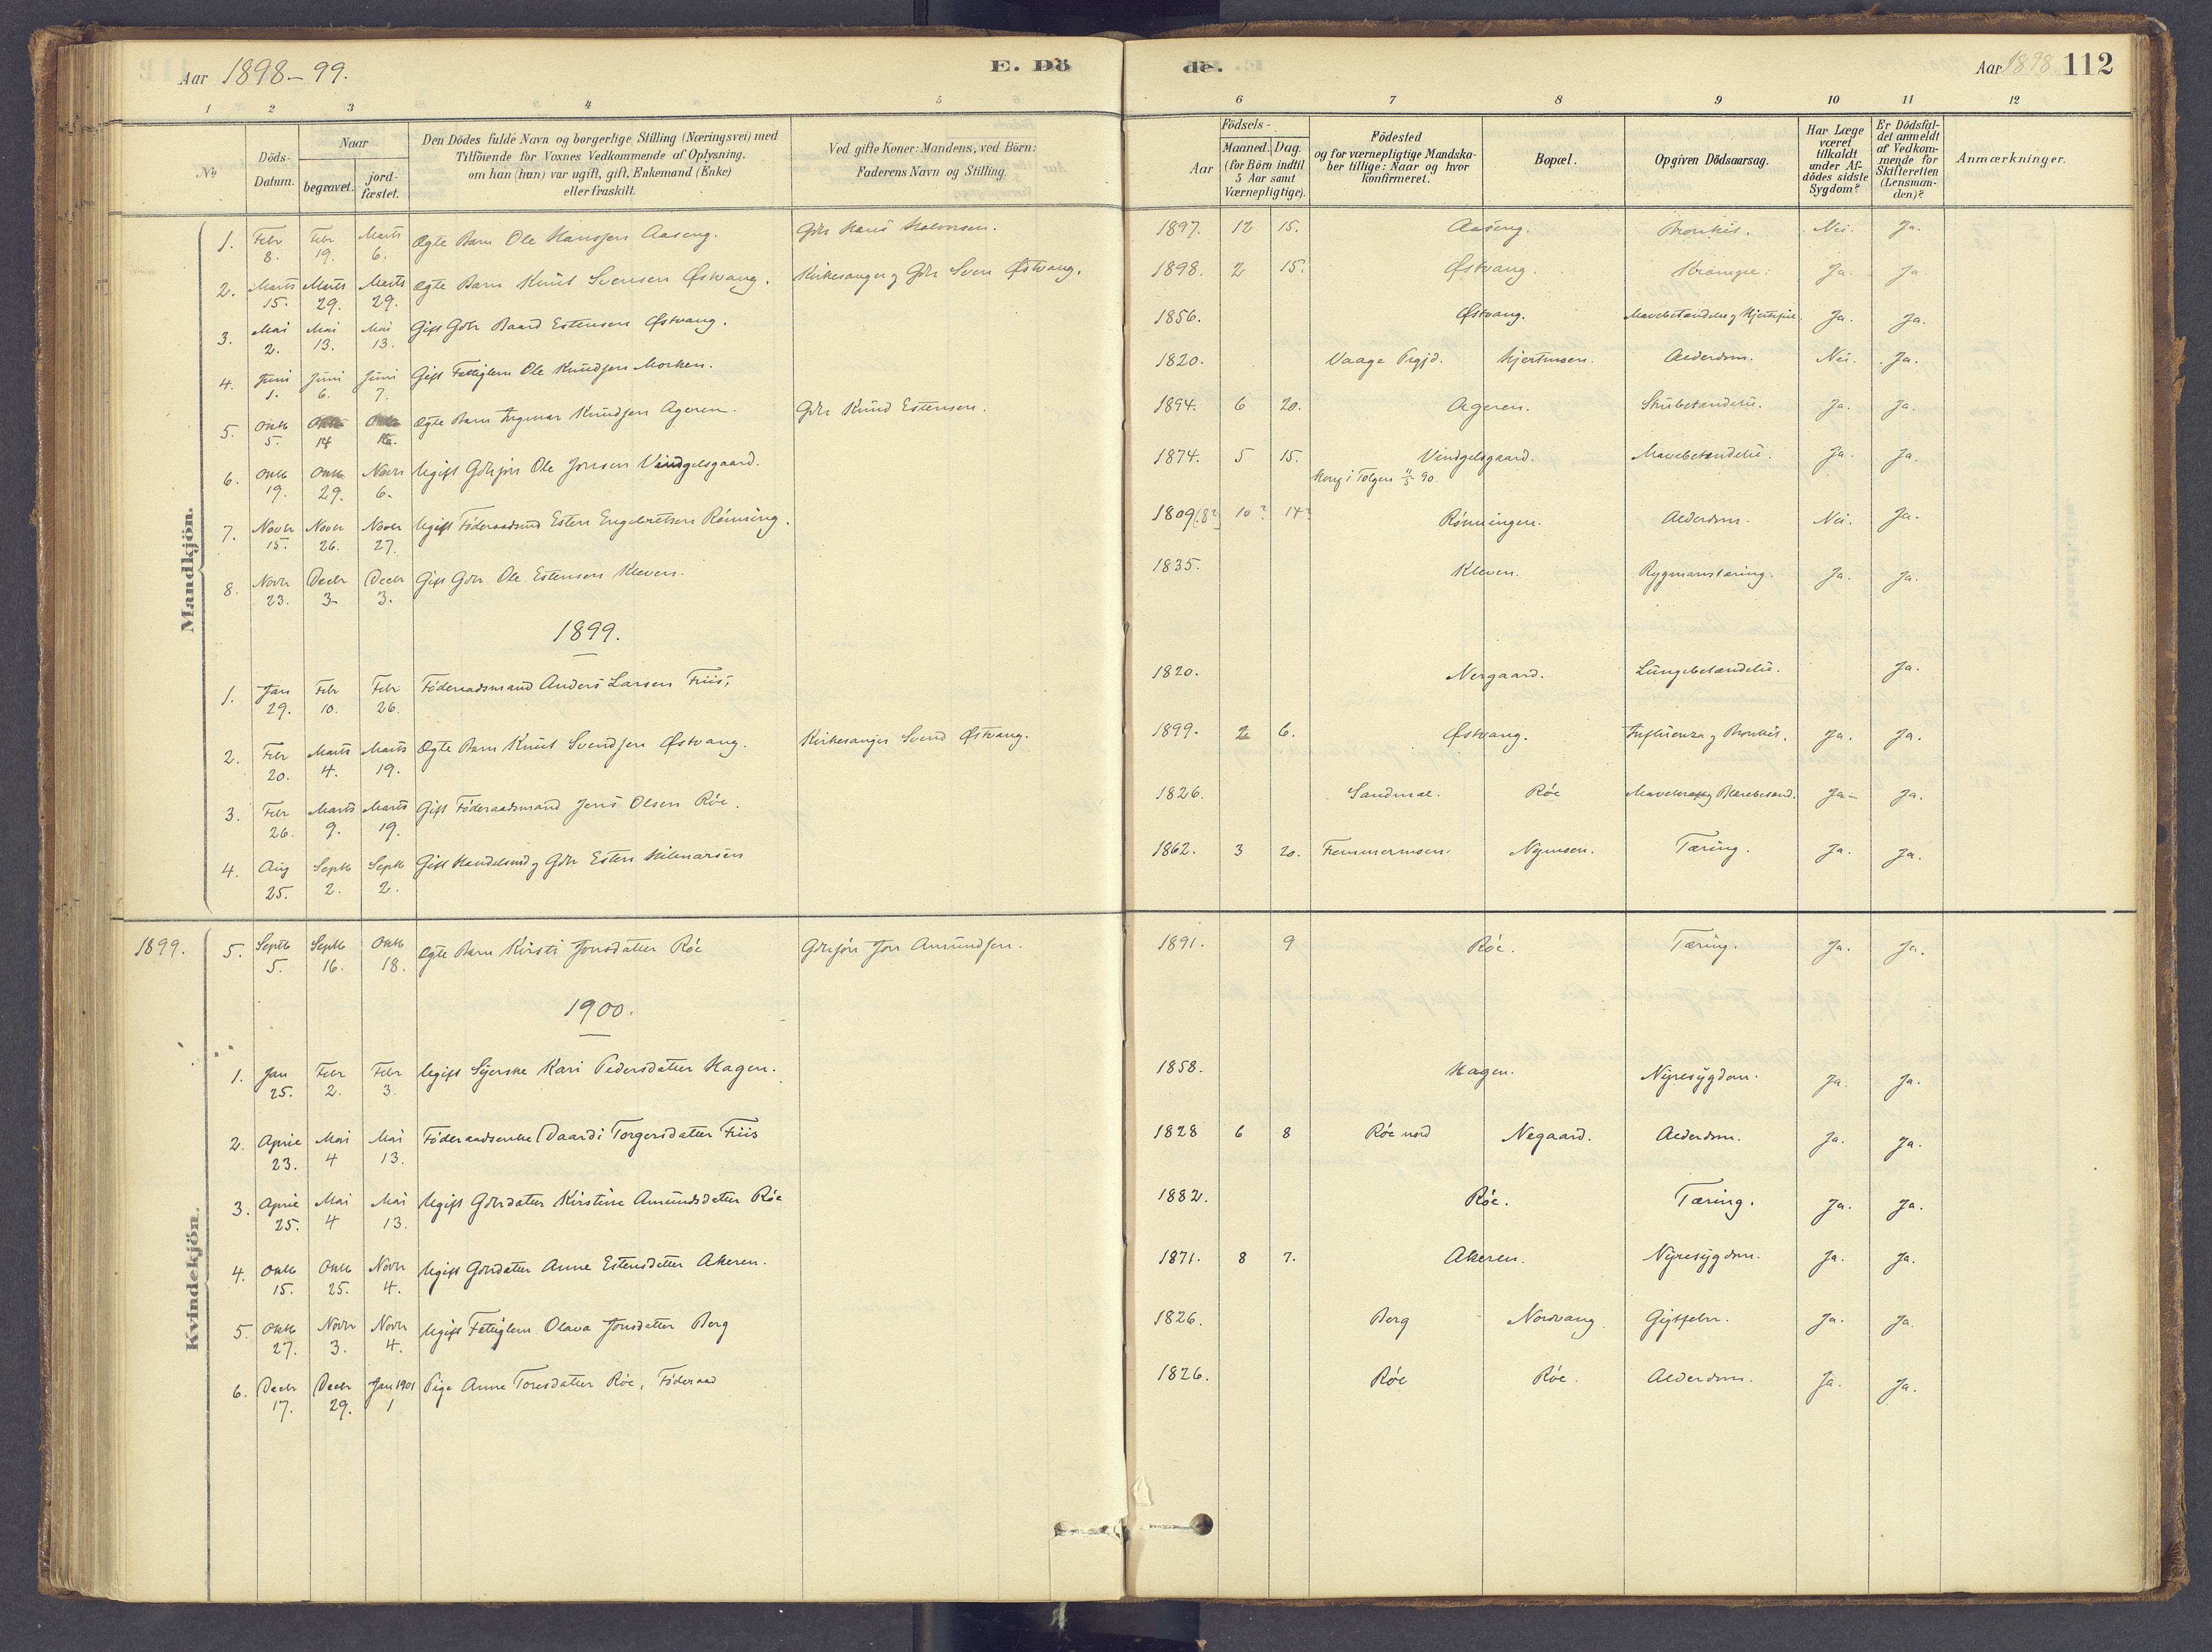 Aar 1898-99.
E. Dö
de.
Aar 1898. 112
1 2 3 4 5 6 7 8 9 10 11 12
No
Döds-Datum.
Naar
begravet.
jord-fæstet.
Den Dödes fulde Navn og borgerlige Stilling (Næringsvei) med
Tilföiende for Voxnes Vedkommende af Oplysning,
om han (hun) var ugift, gift, Enkemand (Enke)
eller fraskilt.
Ved gifte Koner: Mandens, ved Börn:
Faderens Navn og Stilling.
Aar
Födsels-
Maaned. Dag.
(for Börn indtil
5 Aar samt
Værnepligtige).
Födested
og for værnepligtige Mandska-
ber tillige: Naar og hvor
konfirmeret.
Bopæl.
Opgiven Dödsaarsag.
Har Læge
været
tilkaldt
under Af-
dödes sidste
Sygdom?
Er Dödsfal-
det anmeldt
af Vedkom-
mende for
Skifteretten
(Lensman-
den)?
Anmærkninger.
Mandkjön.
1. Febr 8. Febr 19. Marts 6. Ægte Barn Ole Hansjen Aaseng. Gbr Hans Halvorsen. 1897. 12 15. Aaseng. Bronkit. Nei. Ja.
2. Marts 15. Marts 29. Marts 29. Ægte Barn Knut Svensen Østvang. Kirkesanger og Gbr Sven Østvang. 1898. 2 15. Østvang. Krampe. Ja. Ja.
3. Mai 2. Mai 13. Mai 13. Gift Gbr Baard Estensen Østvang. 1856. Østvang. Mavebetændelse og Hjertefeil. Ja. Ja.
4. Juni 1. Juni 6. Juni 7. Gift Fattiglem Ole Knudsen Morken. 1820. Vaage Prgjd. Hjertmoen. Alderdom. Nei. Ja.
5. Oktb 5. Oktb 14 16. Ægte Barn Ingvar Knudsen Ageren. Gbr Knud Estensen. 1894. 6 20. Ageren. Strubetændelse. Ja. Ja.
6. Oktb 19. Oktb 29. Novbr 6. Ugift Gbrsøn Ole Jonsen Vindgelsgaard. 1874. 5 15. Vindgelsgaard. Mavebetændelse. Ja. Ja.
Konf i Tolgen 11/5 90.
7. Novbr 15. Novbr 26. Novbr 27. Ugift Föderaadsmd Esten Engebretsen Rönning. 1809 (8?) 10? 14? Rönningen. Alderdom. Nei. Ja.
8. Novbr 23. Decbr 3. Decbr 3. Gift Gbr Ole Estensen Kleven. 1835. Kleven. Rygmarvstæring. Ja. Ja.
1899.
1. Jan 29. Febr 10. Febr 26. Föderaadsmand Anders Larsen Friis. 1820. Nergaard. Lungebetændelse. Ja.
2. Febr 20. Marts 4. Marts 19. Ægte Barn Knut Svendsen Østvang. Kirkesanger Svend Østvang. 1899. 2 6. Østvang. Influenza og Bronkit. Ja. Ja.
3. Febr 26. Marts 9. Marts 19. Gift Föderaadsmand Jens Olsen Röe. 1826. Sandmæl. Röe Mavekræft og Blærebetænd. Ja. Ja.
4. Aug 25. Septb 2. Septb 2. Gift Handelsmd og Gbr Esten Hilmarsen 1862. 3 20. Femmermoen. Nymoen. Tæring. Ja. Ja.
Kvindekjön.
1899. 5. Septb 5. Septb 16. Oktb 18. Ægte Barn Kirsti Jonsdatter Röe Gbrsön Jon Amundsen. 1891. 9 Röe. Tæring. Ja. Ja.
1900.
1. Jan 25. Febr 2. Febr 3. Ugift Syerske Kari Pedersdatter Hagen. 1858. Hagen. Nyresygdom. Ja. Ja.
2. April 23. Mai 4 Mai 13. Föderaadsenke Baardi Torgersdatter Friis 1828 6 8 Röe nord Negaard. Alderdom. Ja. Ja.
3. April 25. Mai 4 Mai 13. Ugift Gbrdatter Kirstine Amundsdatter Röe 1882. Röe. Tæring. Ja. Ja.
4. Oktb 15. Oktb 25. Novbr 4. Ugift Gbrdatter Anne Estensdatter Akeren. 1871. 8 7. Akeren. Nyresygdom. Ja. Ja.
5. Oktb 27. Novbr 3. Novbr 4. Ugift Fattiglem Olava Jonsdatter Berg 1826. Berg Nordvang. Gigtfeber. Ja. Ja.
6. Decbr 17. Decbr 29. Jan 1901 1 Pige Anne Toresdatter Röe, Föderaad 1826. Röe Röe. Alderdom. Ja. Ja.